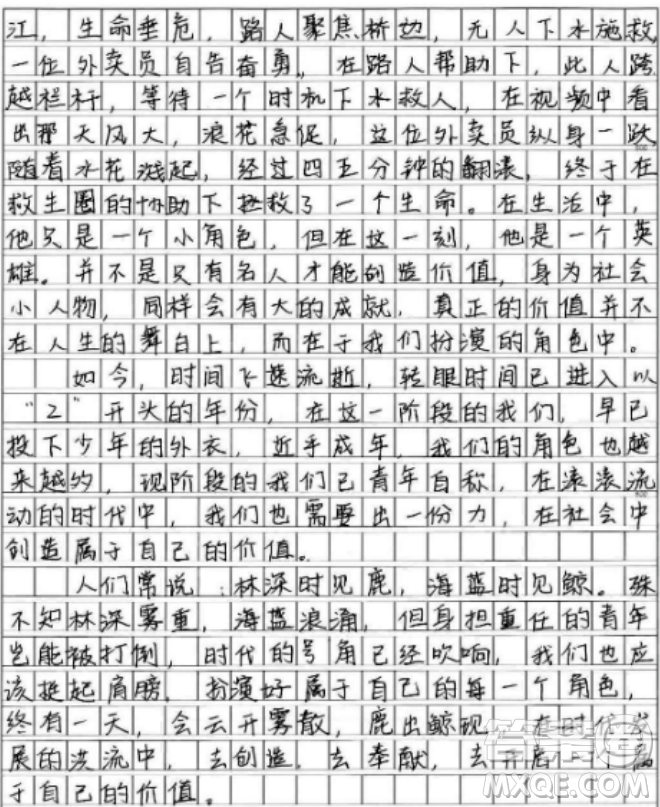 江，生命垂危，路人聚焦桥边，无人下水施救，
一位外卖员自告奋勇。在路人帮助下，此人跨
越栏杆，等待一个时机下水救人，在视频中看
出那天风大，浪花急促，这位外卖员纵身一跃，
随着水花溅起，经过四五分钟的翻滚，终于在
救生圈的协助下拯救了一个生命。在生活中，
他只是一个小角色，但在这一刻，他是一个英
雄。并不是只有名人才能创造价值，身为社会
小人物，同样会有大的成就，真正的价值并不
在人生的舞台上，而在于我们扮演的角色中。
如今，时间飞速流逝，转眼时间已进入以
“2”开头的年份，在这一阶段的我们，早已
投下少年的外衣，近乎成年，我们的角色也越
来越多，现阶段的我们已青年自称，在滚滚流
动的时代中，我们也需要出一份力，在社会中
创造属于自己的价值。
人们常说：林深时见鹿，海蓝时见鲸。殊
不知林深雾重，海蓝浪涌，但身担重任的青年
岂能被打倒，时代的号角已经吹响，我们也应
该挺起肩膀，扮演好属于自己的每一个角色，
终有一天，会云开雾散，鹿出鲸现，在时代发
展的洪流中，去创造，去奉献，去开启一个属
于自己的价值。
MXQE.COM